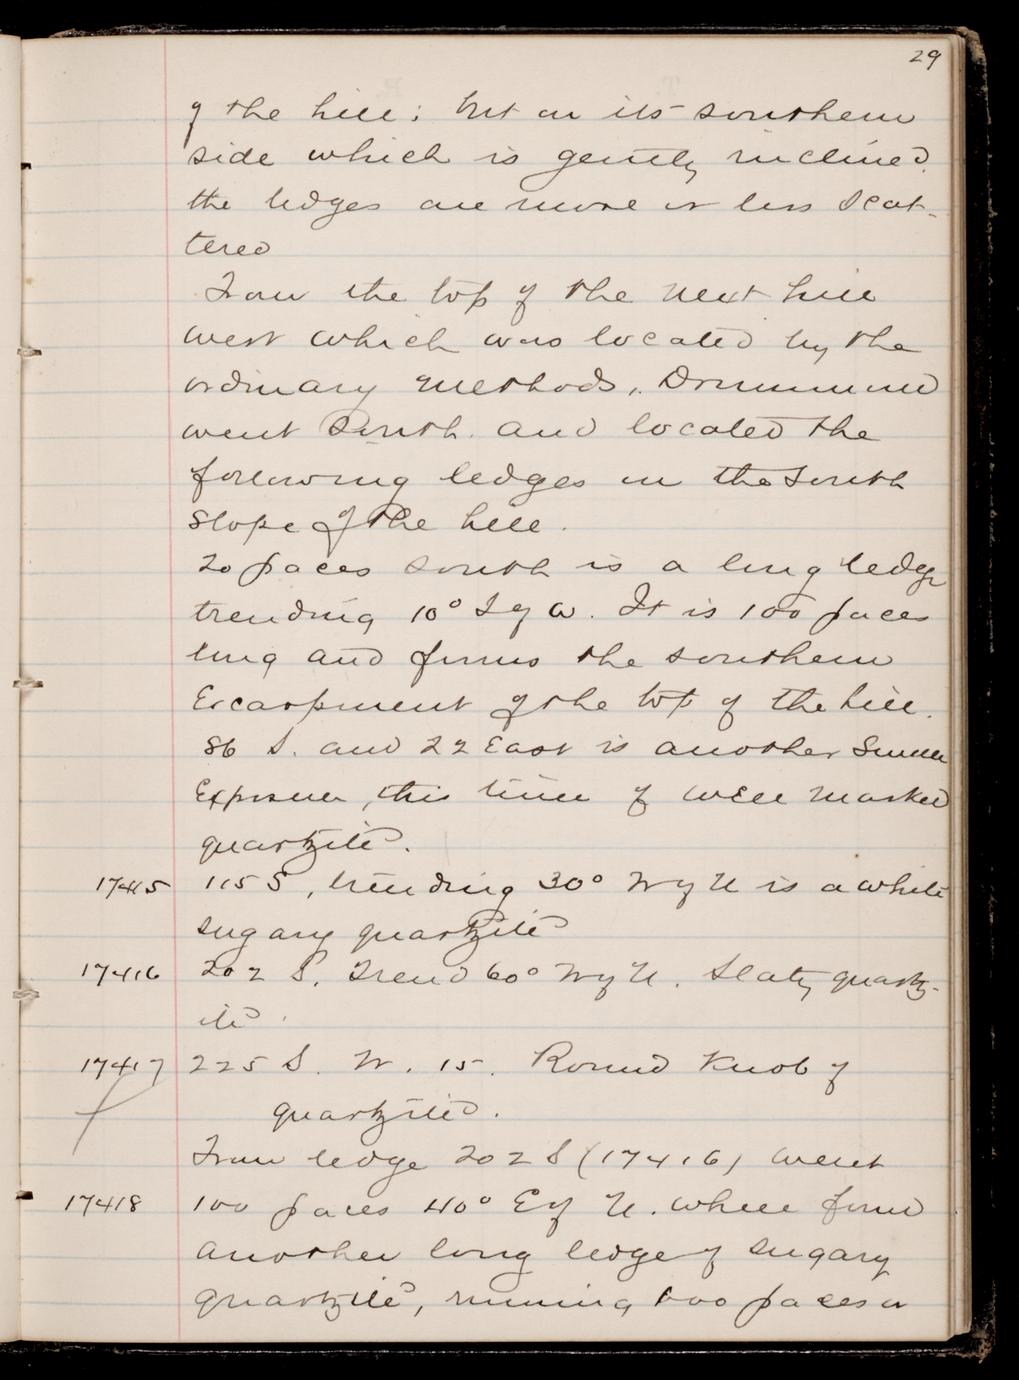 29
of the hill; but on its southern
side which is gently inclined,
the ledges are more or less scat-
tered
From the top of the next hill
west which was located by the
ordinary methods, Drummond
went South and located the
following ledges on the South
slope of the hill.
20 paces south is a long ledge
trending 10° S of W. It is 100 paces
long and forms the southern
Escarpment of the top of the hill.
86 S. and 22 East is another smaller
Exposure, this time of well marked
quartzite.
17415 115 S, trending 30° W of N is a white
sugary quartzite
17416 202 S. Trend 60° W of N. Slaty quartz-
ite.
17417 225 S. W. 15. Round Knob of
quartzite.
From ledge 202 S (17416) went
17418 100 paces 40° E of N. where found
another long ledge of sugary
quartzite, running 600 paces or